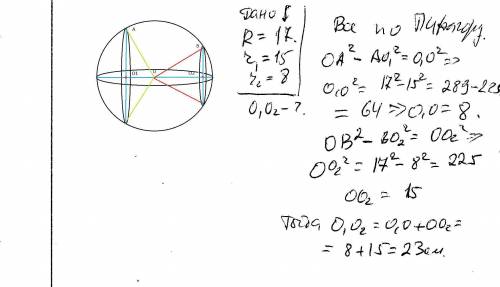 A
B
O1
O
O2
Дано:
R = 17.
r₁ = 15
r₂ = 8
O₁O₂ - ?
Все по Пифагору.
OA² - AO₁² = O₁O² =>
O₁O² = 17² - 15² = 289 - 225
= 64 => O₁O = 8.
OB² - BO₂² = OO₂² =>
OO₂² = 17² - 8² = 225
OO₂ = 15
Тогда O₁O₂ = O₁O + OO₂ =
= 8 + 15 = 23 см.